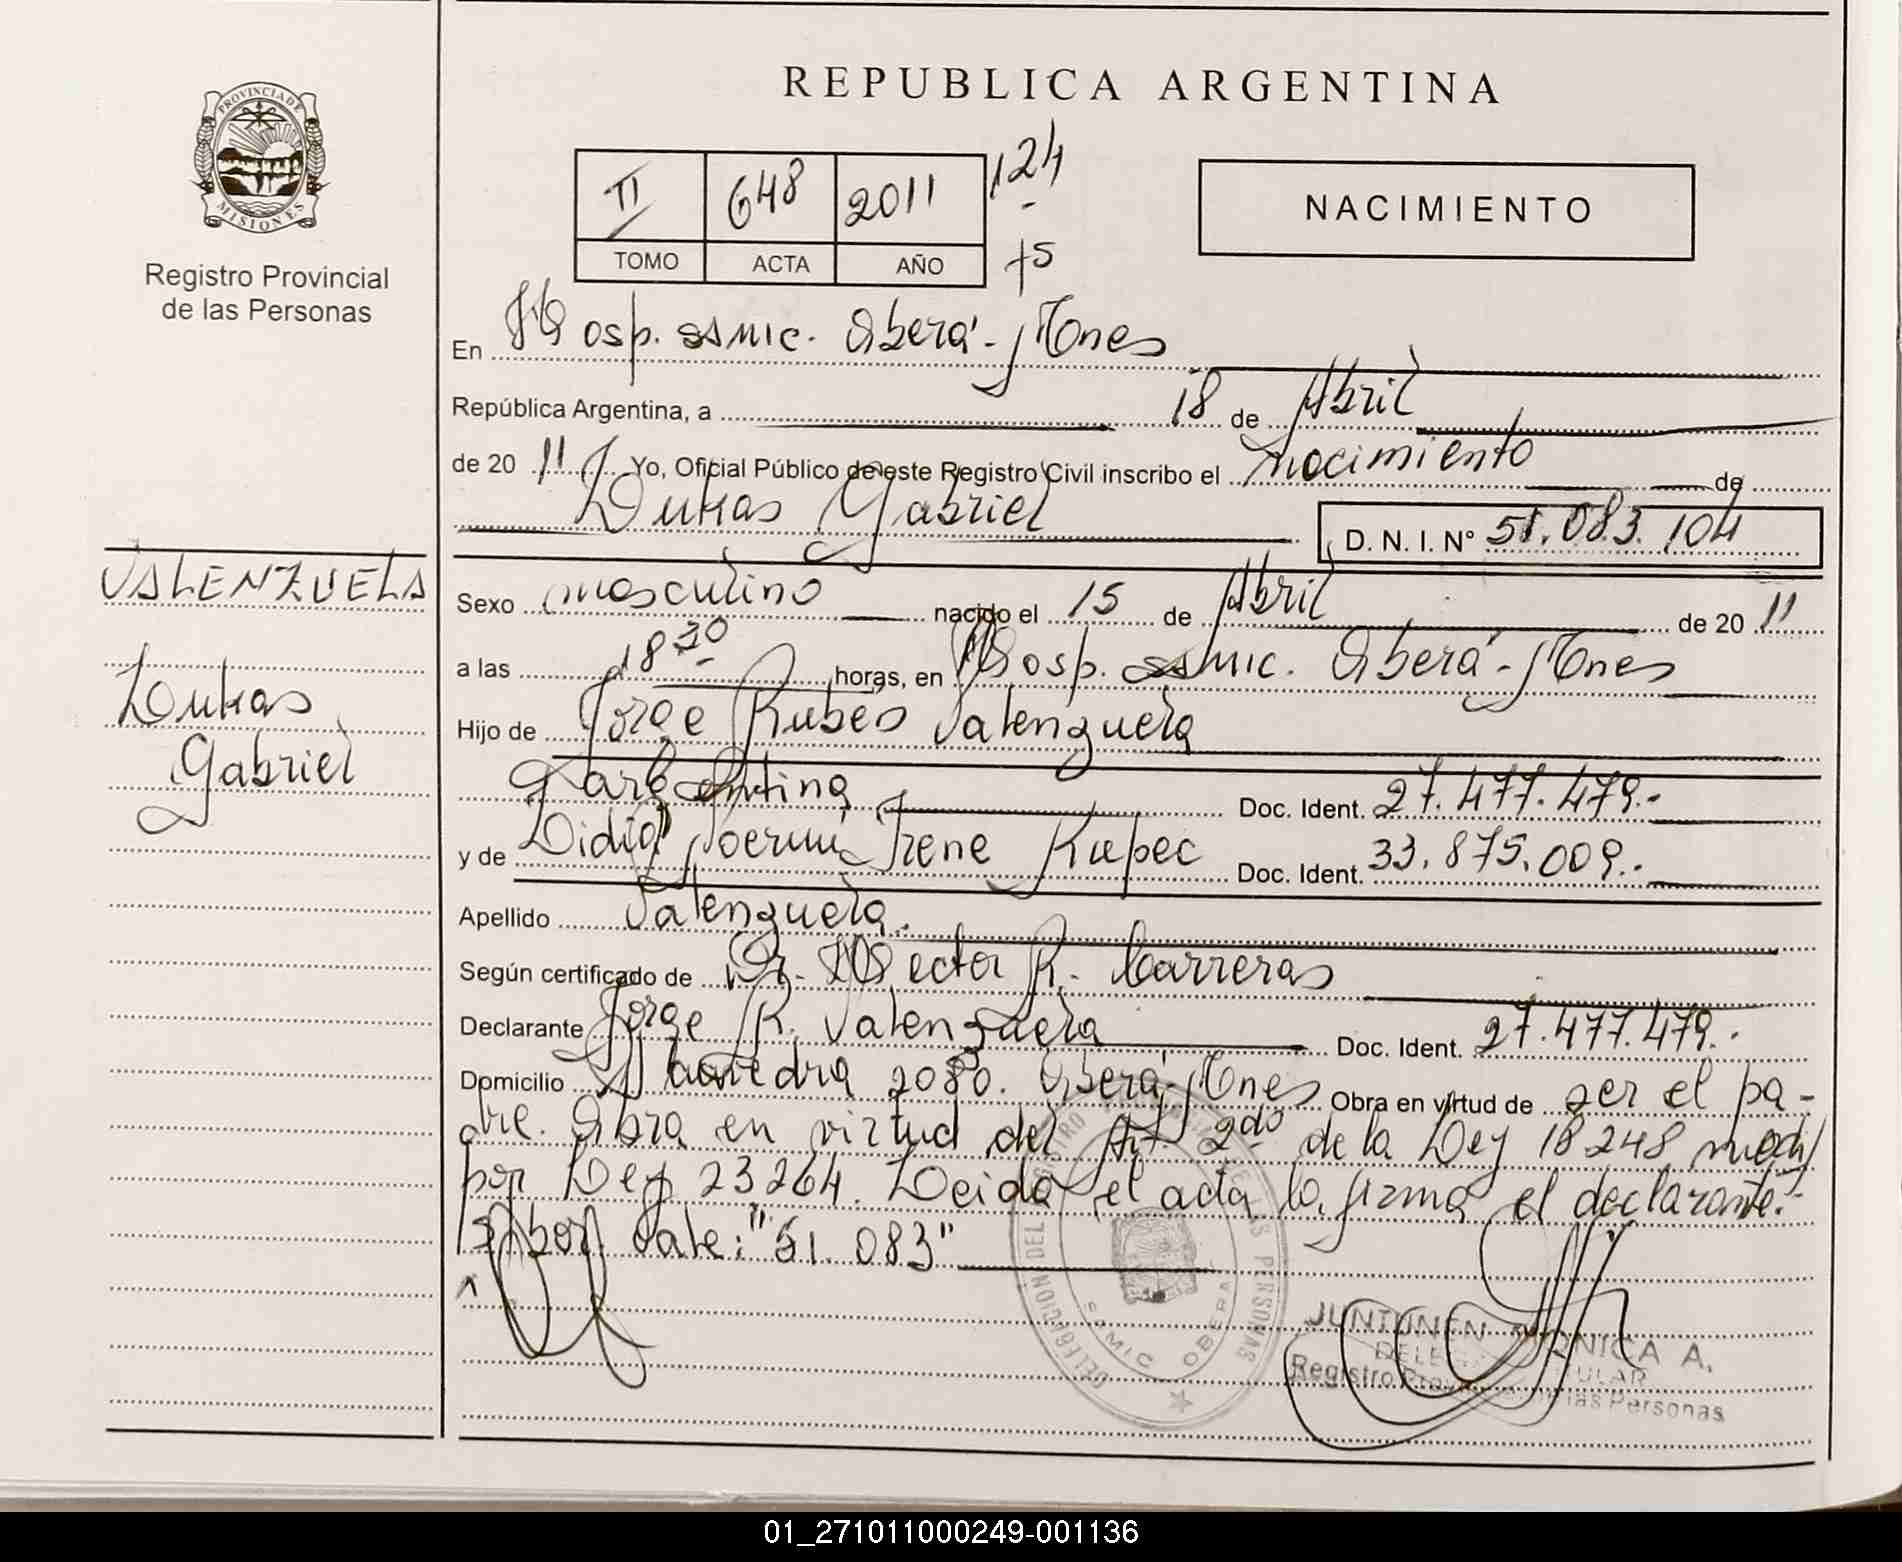 PROVINCIA DE
MISIONES
Registro Provincial
de las Personas
REPUBLICA ARGENTINA
II 648 2011 124
TOMO ACTA AÑO 75
NACIMIENTO
En Hosp. SAMIC. Oberá - Mnes
República Argentina, a 18 de Abril
de 20 11 Yo, Oficial Público de este Registro Civil inscribo el nacimiento de
Lukas Gabriel D. N. I. Nº 51.083.104
VALENZUELA
Lukas
Gabriel
Sexo masculino nacido el 15 de Abril de 20 11
a las 18 30 horas, en Hosp. SAMIC. Oberá - Mnes
Hijo de Jorge Rubes Valenzuela
argentina Doc. Ident. 27.477.479.-
y de Lidia Irene Kupec Doc. Ident. 33.875.009.-
Apellido Valenzuela.
Según certificado de Dr. Hector R. Carreras
Declarante Jorge R. Valenzuela Doc. Ident. 27.477.479.-
Domicilio Saavedra 2080. Oberá - Mnes Obra en virtud de ser el pa-
dre. Obra en virtud del Art. 2do de la Ley 18248 modif
por Ley 23264. Leida el acta la firma el declarante.-
S/bor. Vale: "51.083"
DELEGACION DEL REGISTRO PROVINCIAL DE LAS PERSONAS
SAMIC OBERA
JUNTUNEN MONICA A.
DELEGADA TITULAR
Registro Provincial de las Personas
01_271011000249-001136